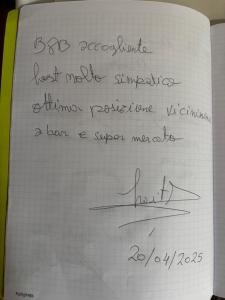 B&B accogliente
host molto simpatico
ottima posizione vicinissimo
a bar e super mercato
20/04/2025